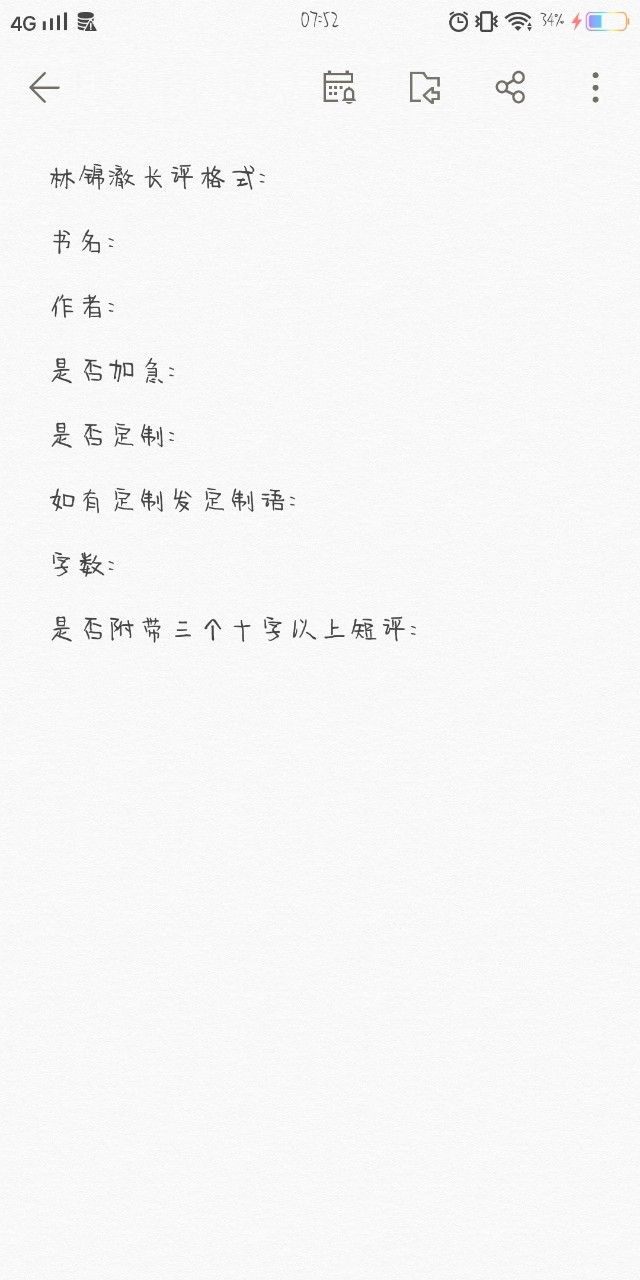 4G 07:52 34%
林锦澈长评格式:
书名:
作者:
是否加急:
是否定制:
如有定制发定制语:
字数:
是否附带三个十字以上短评: